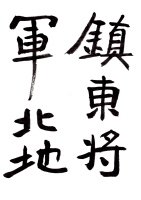 鎮東将
軍北地